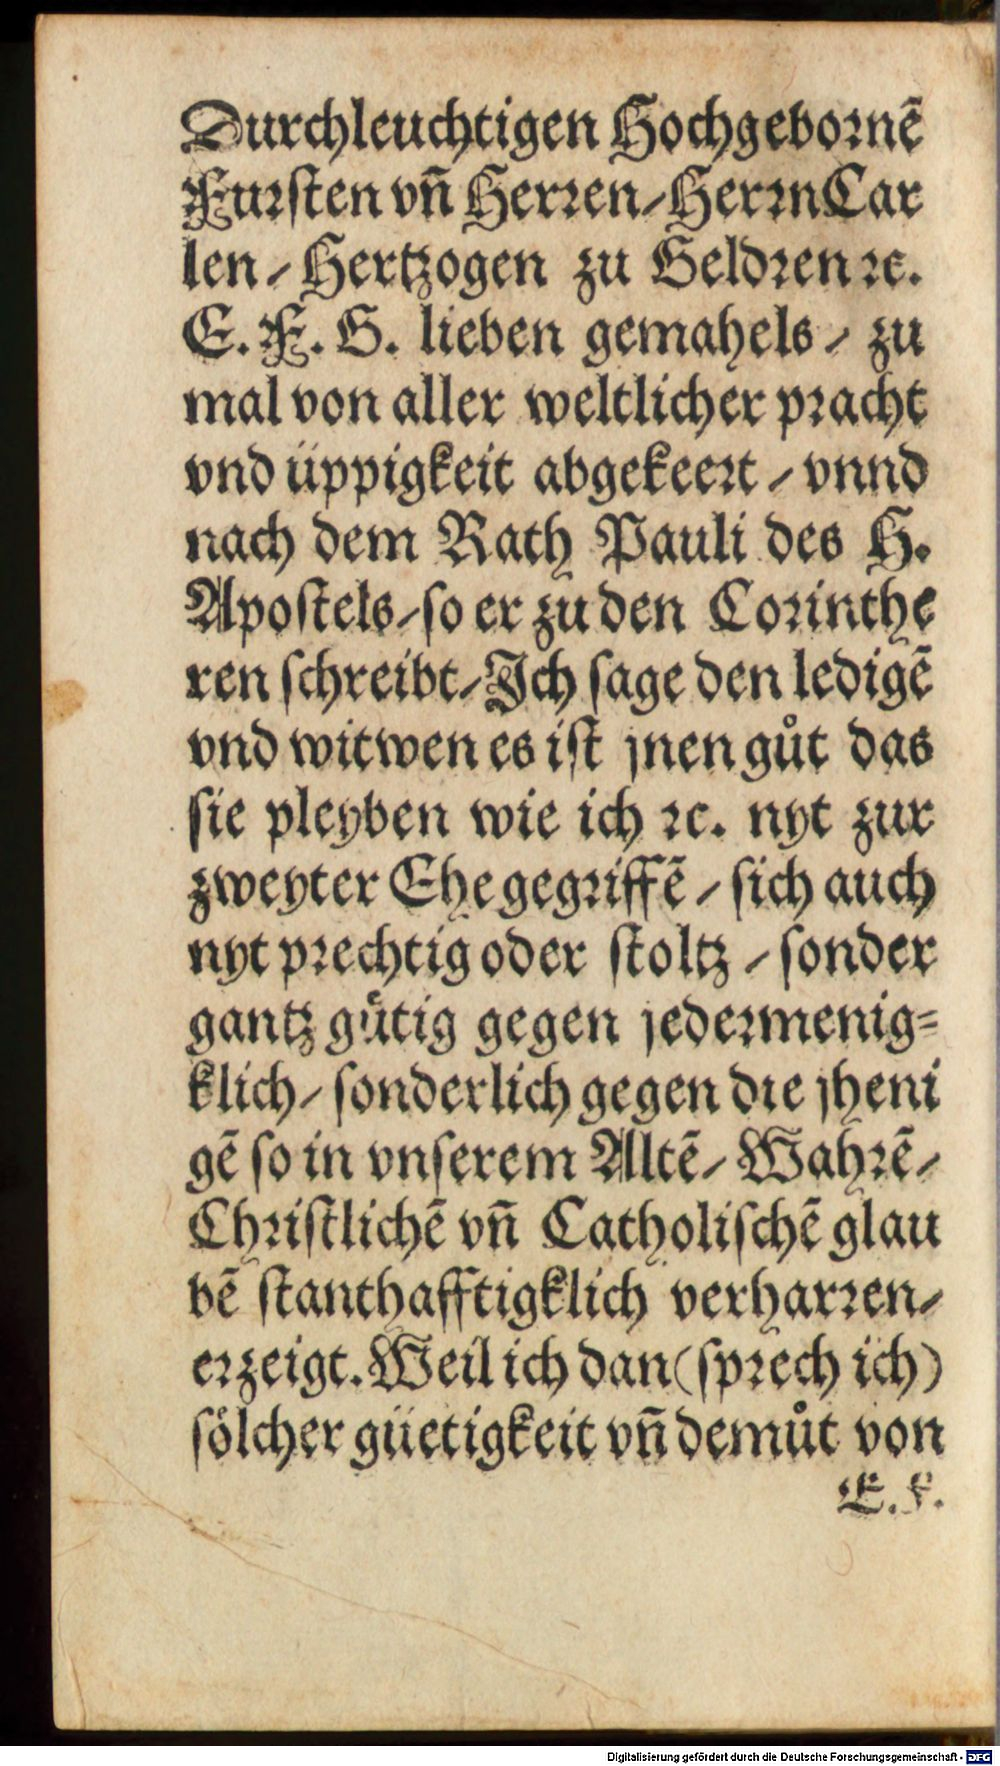 Durchleuchtigen Hochgebornē
Fursten vn̄ Herren/HerrnCar
len/Hertzogen zu Geldren ꝛc.
E. F. G. lieben gemahels/ zu
mal von aller weltlicher pracht
vnd üppigkeit abgekeert/ vnnd
nach dem Rath Pauli des H.
Apostels/so er zu den Corinthe
ren schreibt/Ich sage den ledigē
vnd witwen es ist jnen gůt das
sie pleyben wie ich ꝛc. nyt zur
zweyter Ehe gegriffē/ sich auch
nyt prechtig oder stoltz/ sonder
gantz gůtig gegen jedermenig=
klich/ sonderlich gegen die jheni
gē so in vnserem Altē/ Wahrē/
Christlichē vn̄ Catholischē glau
bē stanthafftigklich verharren/
erzeigt.Weil ich dan(sprech ich)
sölcher güetigkeit vn̄ demůt von
E.F.
Digitalisierung gefördert durch die Deutsche Forschungsgemeinschaft - DFG